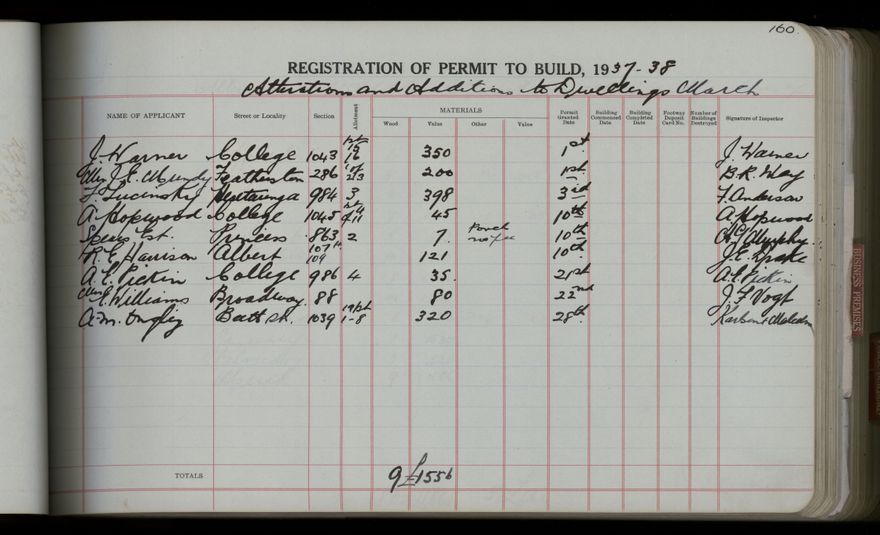 160
REGISTRATION OF PERMIT TO BUILD, 1937-38
Alterations and Additions to Dwellings March
NAME OF APPLICANT Street or Locality Section Allotment MATERIALS Permit Granted Date Building Commenced Date Building Completed Date Footway Deposit Card No. Number of Buildings Destroyed Signature of Inspector
Wood Value Other Value
J. Warner College 1043 16 350 1st J. Warner
J. E. Mundy Featherston 286 200 1st B. R. Way
984 3 398 3rd F. Anderson
A Hopwood College 1045 45 10th A Hopwood
Speirs Est. Princess 863 2 7. Porch no fee 10th Murphy
R. E. Harrison Albert 109 121 10th J. E. Drake
A. E. Pickin College 986 4 35. 21st A. E. Pickin
Williams Broadway 88 80 22nd J. F. Vogt
A. M. Batt St. 1039 1-8 320 28th Malcolm
TOTALS 9 £1556
BUSINESS PREMISES